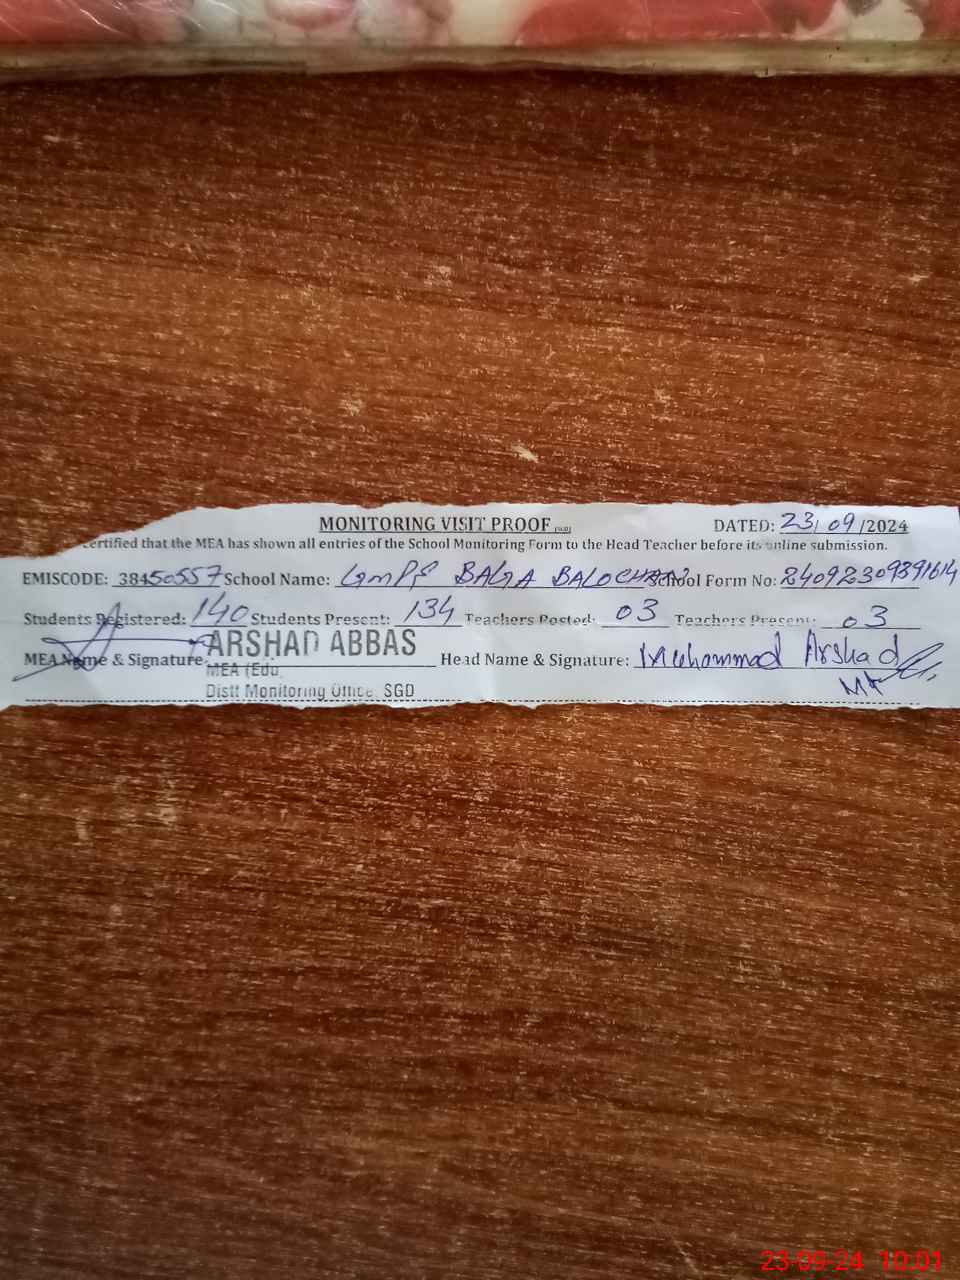 MONITORING VISIT PROOF DATED: 23/09/2024
certified that the MEA has shown all entries of the School Monitoring Form to the Head Teacher before its online submission.
EMISCODE: 38450557 School Name: GMPS BAGA BALOCHAN School Form No: 24092309391614
Students Registered: 140 Students Present: 134 Teachers Posted: 03 Teachers Present: 03
MEA Name & Signature: ARSHAD ABBAS Head Name & Signature: Muhammad Arshad
MEA (Edu)
Distt Monitoring Office, SGD
23-09-24 10:01